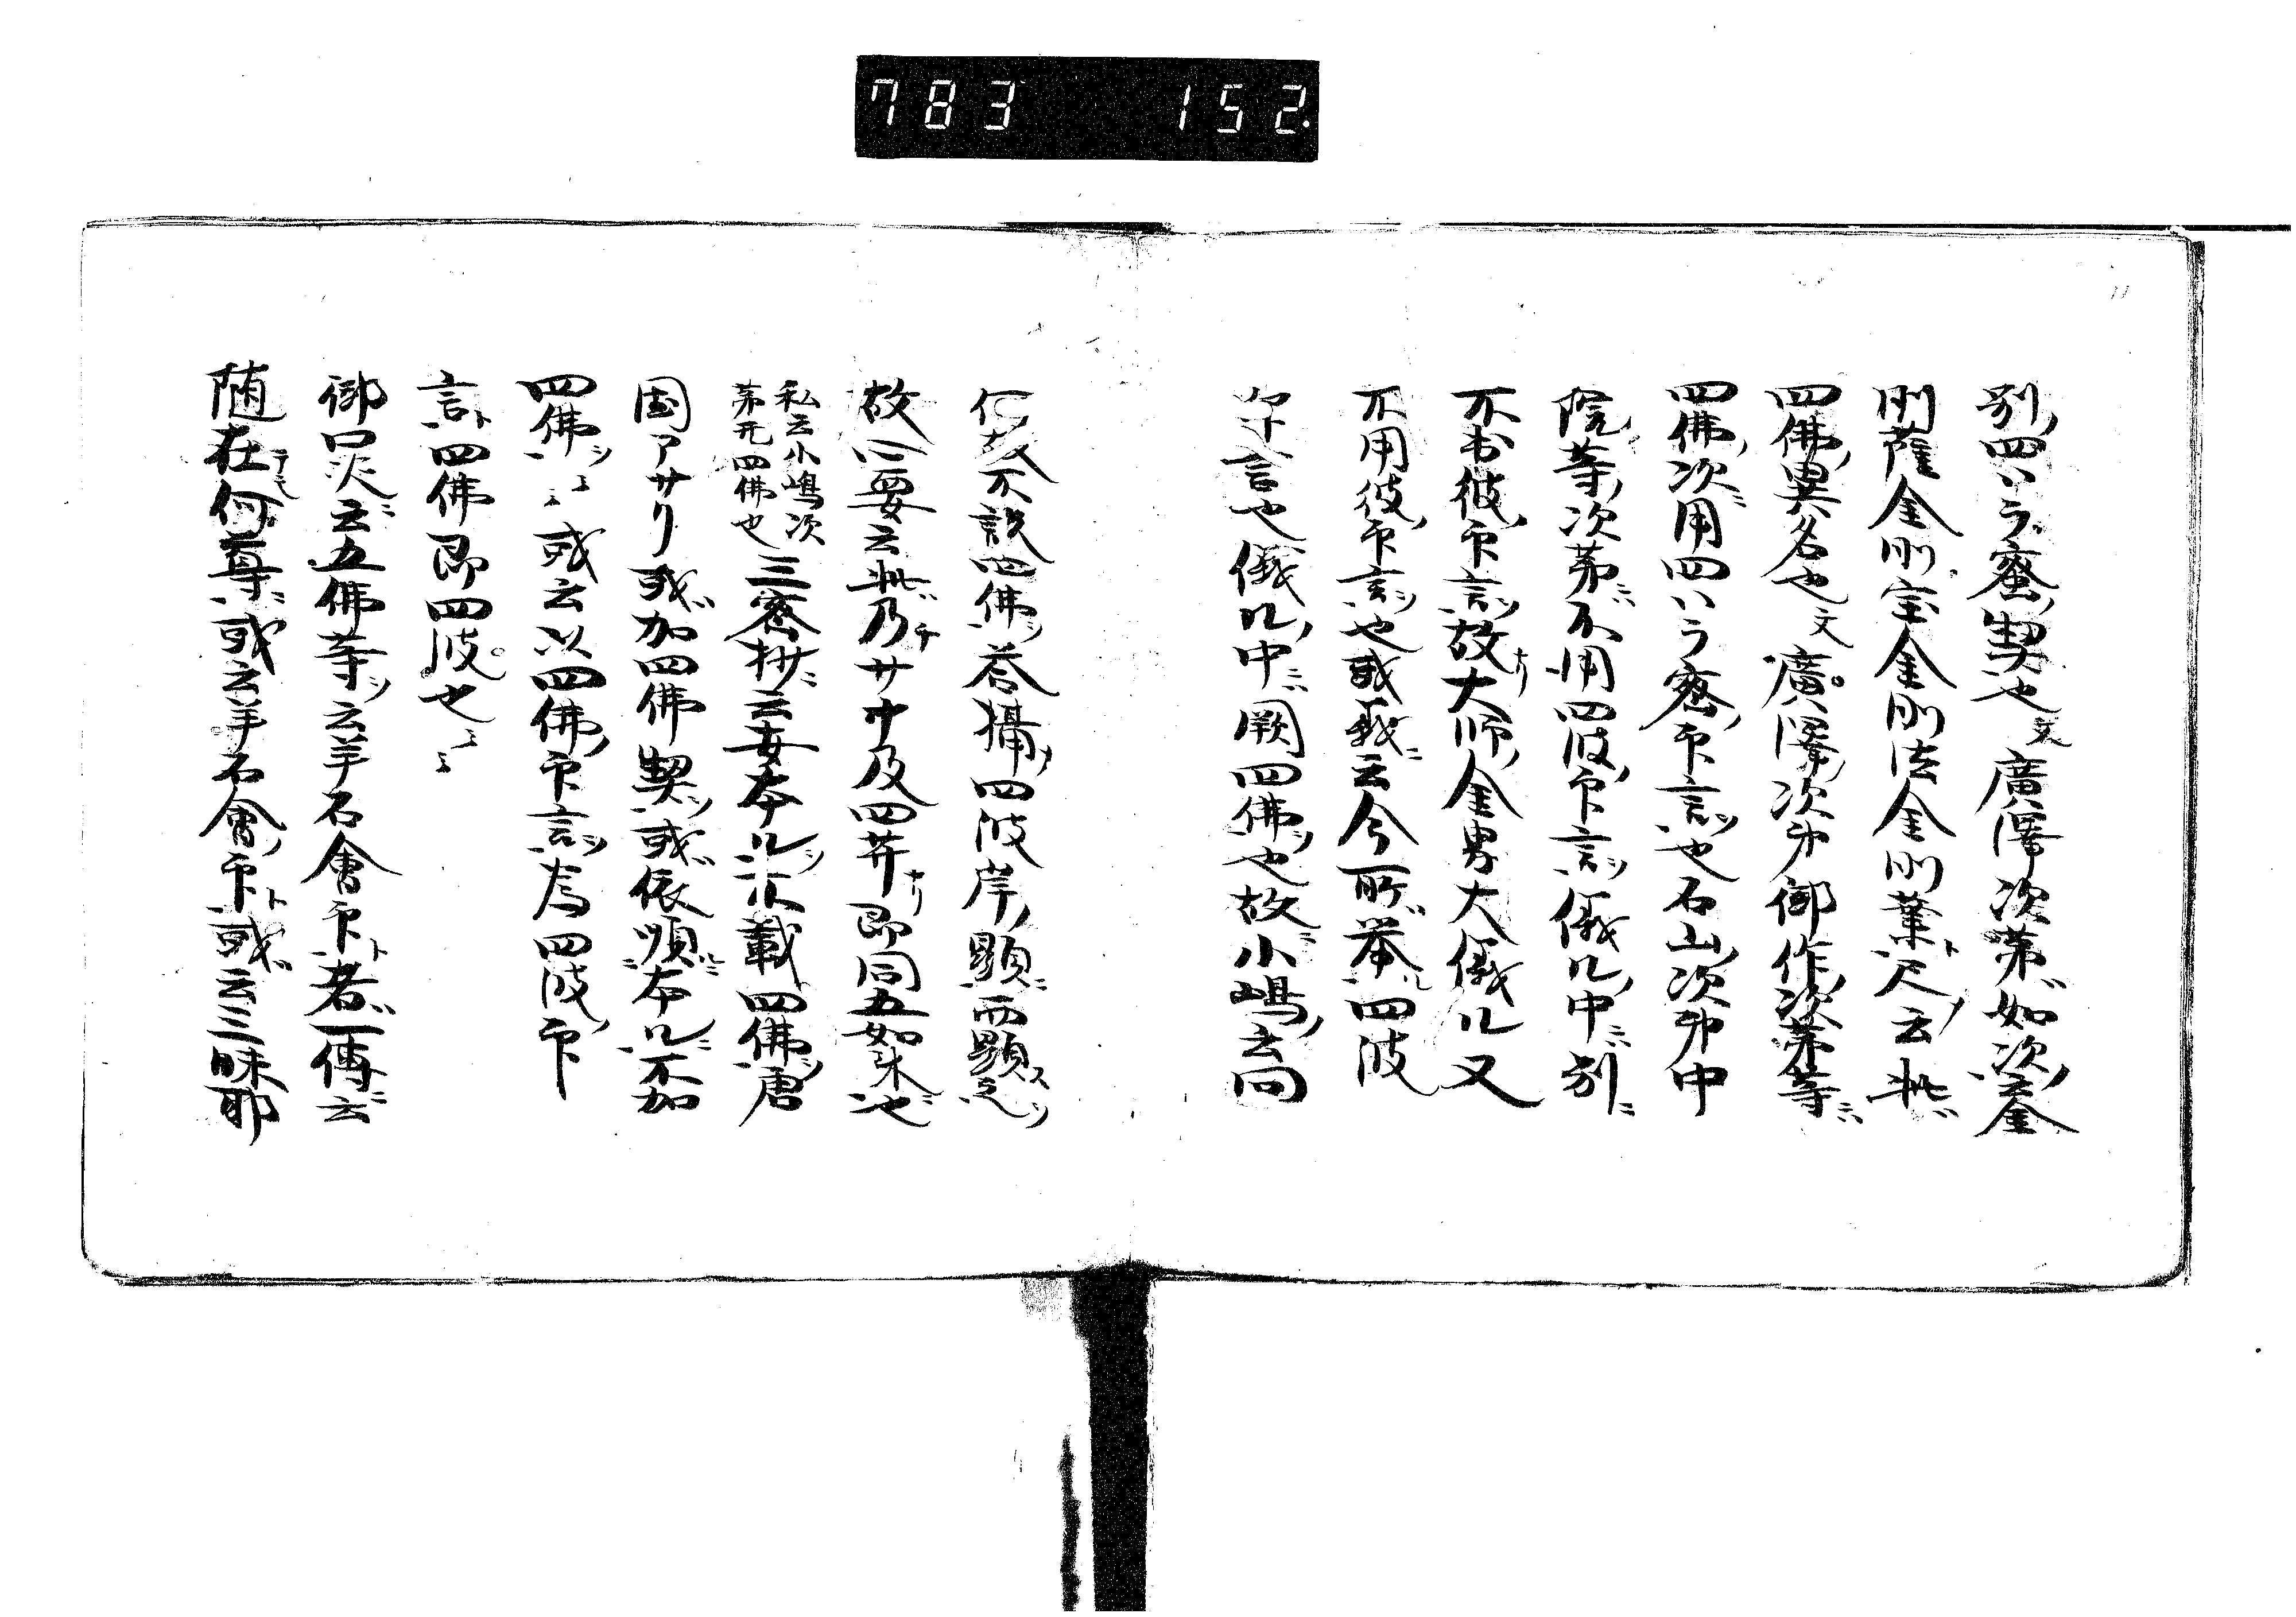 783 152
別四ハラ蜜契也文廣澤次第如次金
剛薩金剛宝金剛法金剛葉ト尺云此
四佛異名也文廣澤次第御作次第等ニハ
四佛次用四ハラ蜜印言也石山次第中
院等次第ニハ不用四波印言儀几中ニハ別ニ
不出彼印言故大師金界大儀几又
不用彼印言也或義云今所挙四波
印言也儀几中ニハ闕四佛也故小嶋云問
何故不説四佛答攝四波岸顕而顕之
故心要云此乃サナ及四芥ナリ即同五如来也
私云小嶋次
第无四佛也
三密抄ニ云安本几不載四佛唐
国アサリ或加四佛契或依順本几不加
四佛ミミ或云以四佛印言為四波印
言ト四佛即四波也ミミ
御口决云五佛等云羊石會印ト者一傳云
随在何尊或云羊石會印ト或云三昧耶